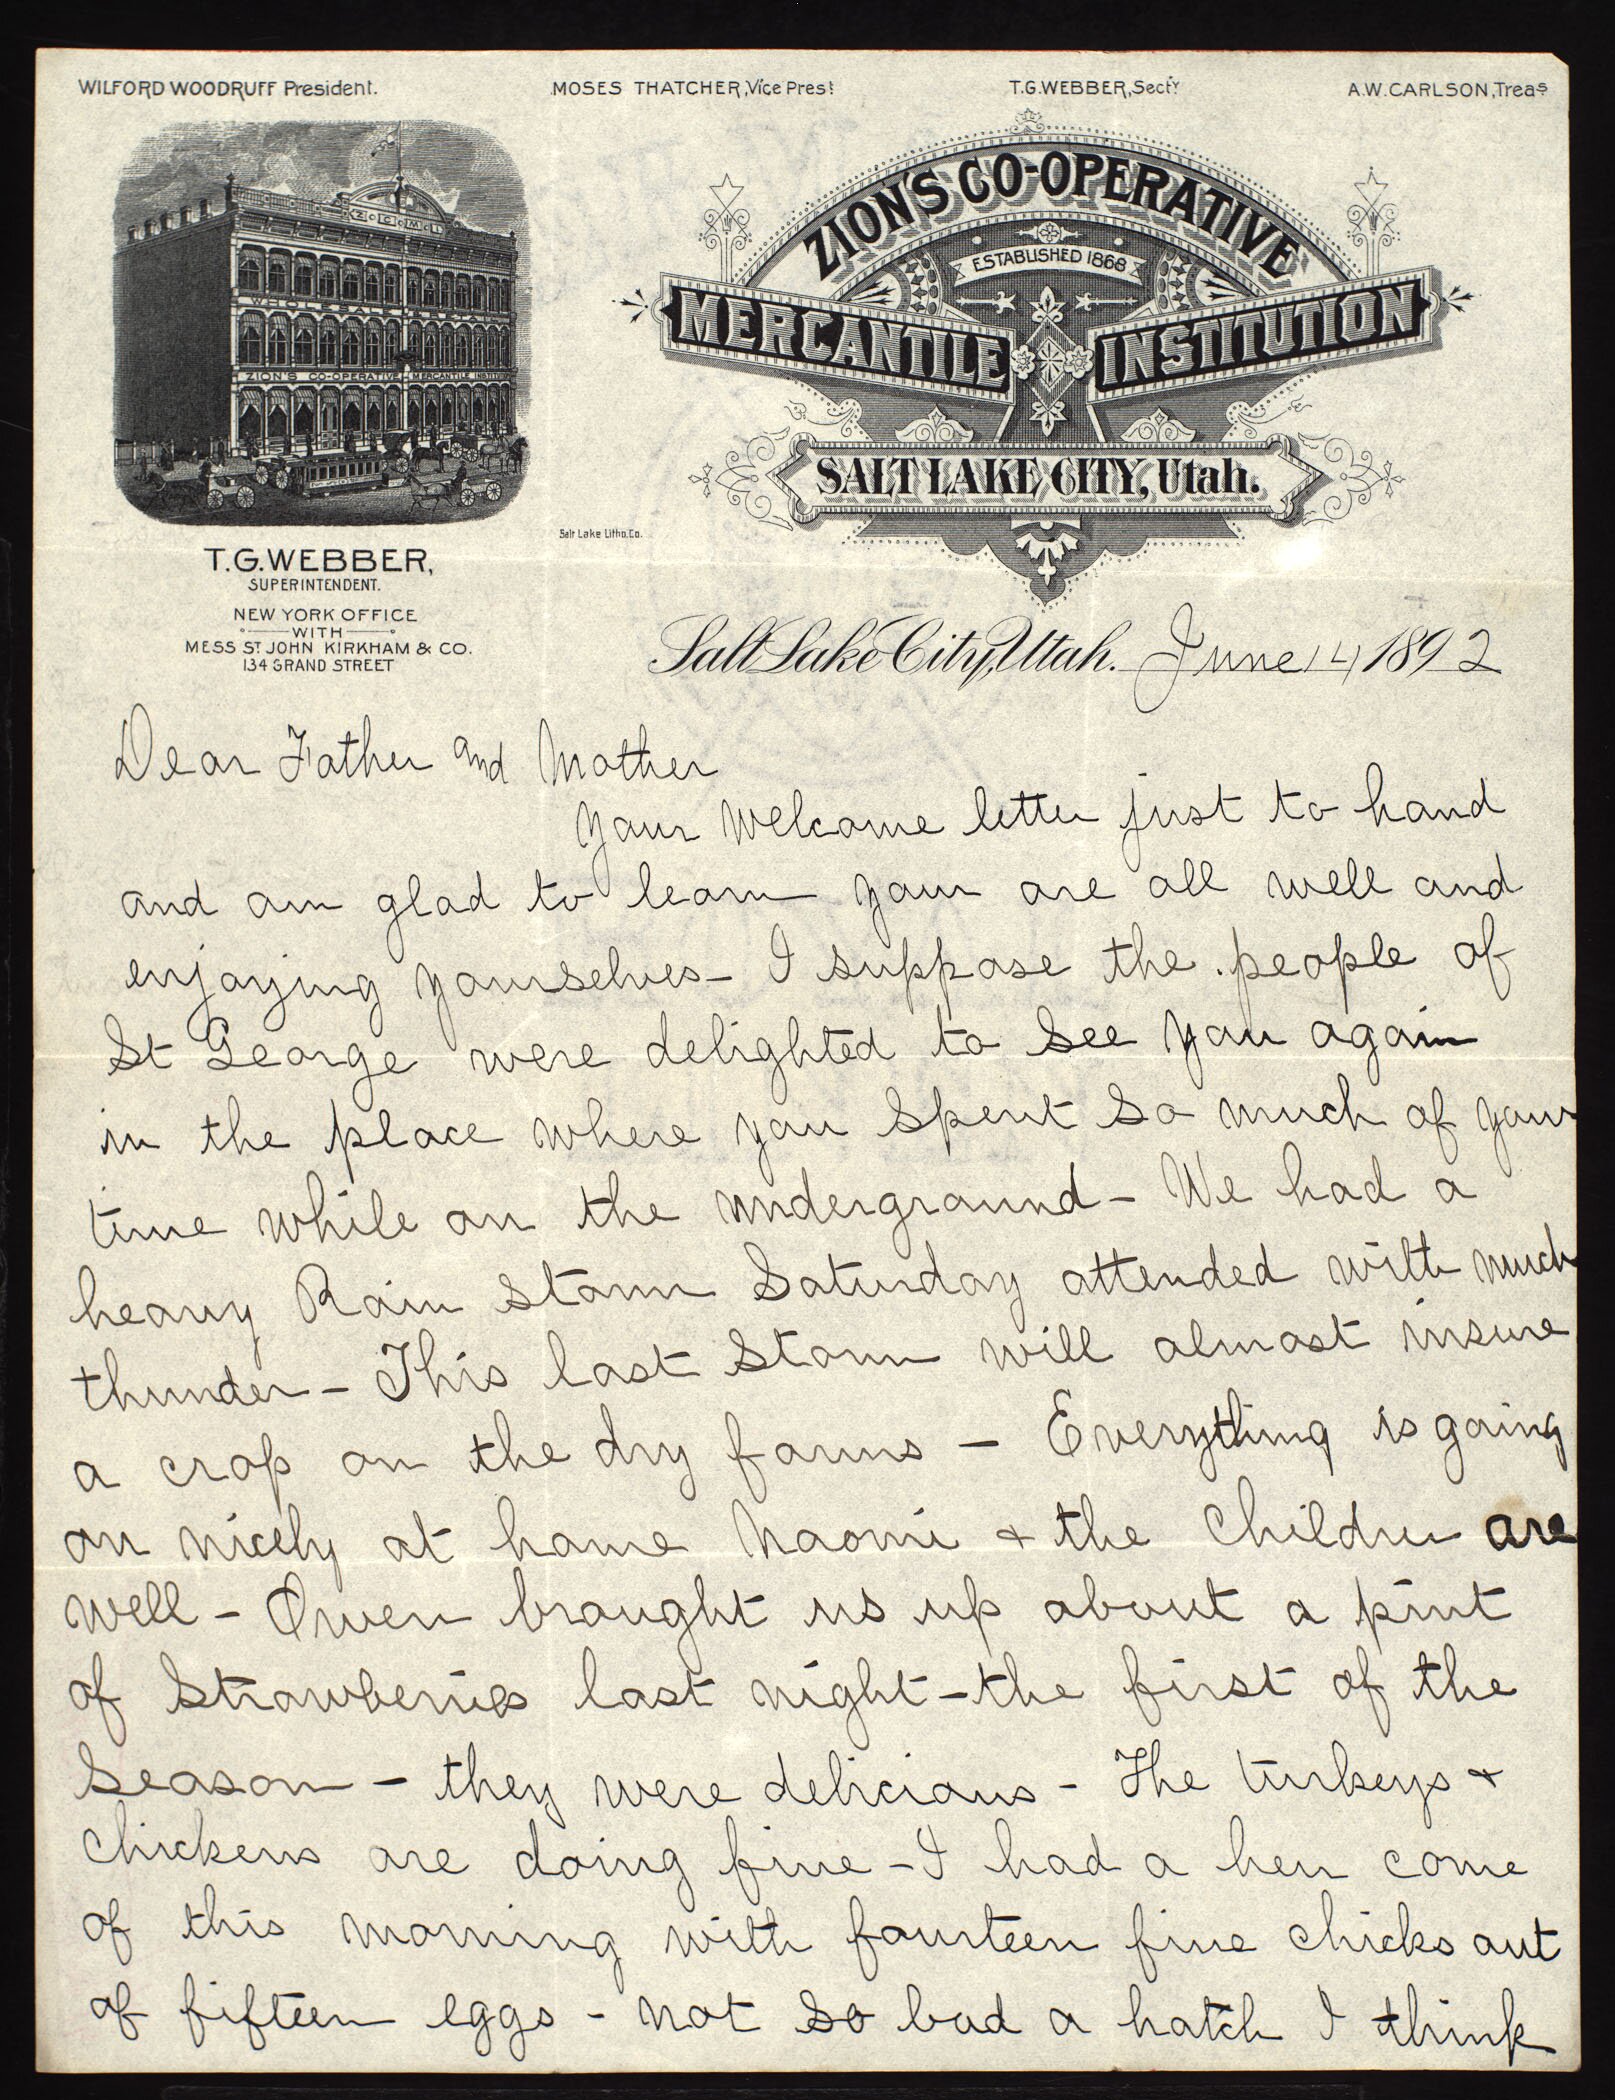 WILFORD WOODRUFF President. MOSES THATCHER, Vice Prest T.G. WEBBER, Secty A.W. CARLSON, Treas
Z.C.M.I.
WHOLESALE
ZION'S CO-OPERATIVE MERCANTILE INSTITUTION
ZION'S CO-OPERATIVE
ESTABLISHED 1868
MERCANTILE INSTITUTION
SALT LAKE CITY, Utah.
Salt Lake Litho. Co.
T.G. WEBBER,
SUPERINTENDENT.
NEW YORK OFFICE
WITH
MESS ST JOHN KIRKHAM & CO.
134 GRAND STREET
Salt Lake City, Utah. June 14, 1892
Dear Father and Mother
Your welcome letter just to hand
and am glad to learn your are all well and
enjoying yourselves - I suppose the people of
St George were delighted to see you again
in the place where you spent so much of your
time while on the underground - We had a
heavy Rain storm Saturday attended with much
thunder - This last storm will almost insure
a crop on the dry farms - Everything is going
on nicely at home Naomi & the Children are
well - Owen brought us up about a pint
of Strawberries last night - the first of the
season - they were delicious - The turkeys &
chickens are doing fine - I had a hen come
of this morning with fourteen fine chicks out
of fifteen eggs - not so bad a hatch I think